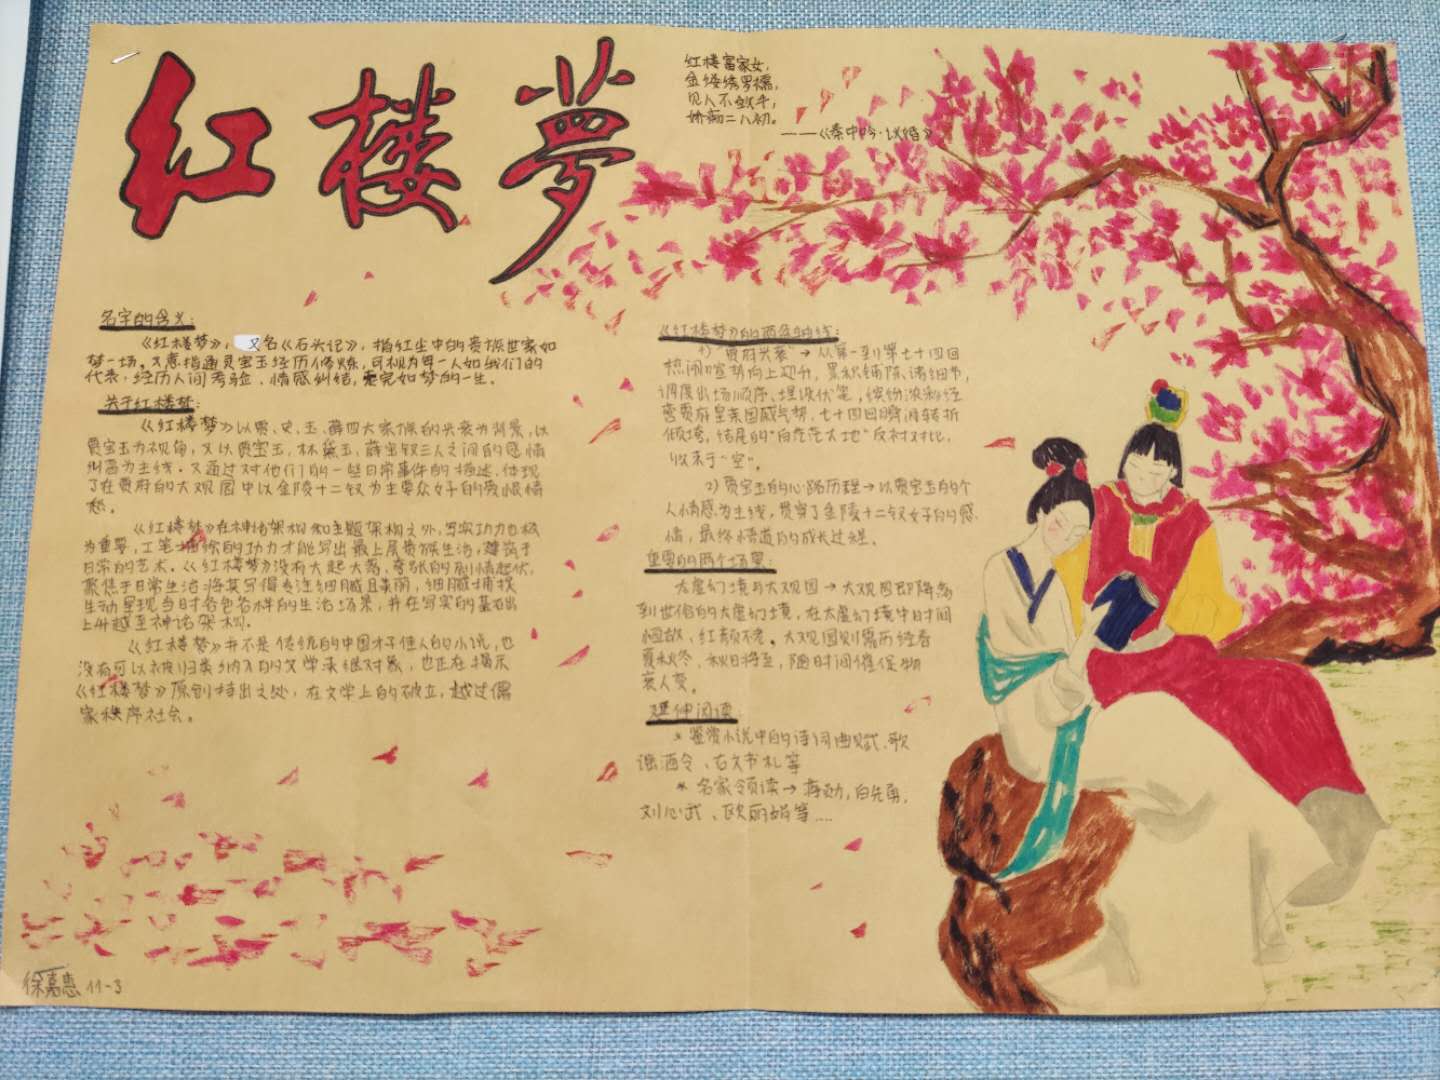 红楼夢
红楼富家女，
金缕绣罗襦，
见人不敛手，
娇痴二八初。
——《秦中吟·议婚》
名字的含义：
《红楼梦》，又名《石头记》，指红尘中的贵族世家如
梦一场。又意指通灵宝玉经历修炼，可视为每一人如我们的
代表，经历人间考验、情感纠结，更完如梦的一生。
关于红楼梦：
《红楼梦》以贾、史、王、薛四大家族的兴衰为背景，以
贾宝玉为视角，又以贾宝玉，林黛玉，薛宝钗三人之间的感情
纠葛为主线。又通过对他们的一些日常事件的描述，体现
了在贾府的大观园中以金陵十二钗为主要众女子的爱恨情
愁。
《红楼梦》在神话架构和主题架构之外，写实功力也极
为重要，工笔描绘的功力才能写出最上层贵族生活，建筑于
日常的艺术。《红楼梦》没有大起大落、夸张的剧情起伏，
聚焦于日常生活，将其写得专注细腻且美丽，细腻捕捉
生动呈现当时各色各样的生活场景，并在写实的基础出
上升越至神话架构。
《红楼梦》并不是传统的中国才子佳人的小说，也
没有可以被归类纳入的文学承继对象，也正在揭示
《红楼梦》原创特出之处，在文学上的破立，越过儒
家秩序社会。
《红楼梦》的两条轴线：
1）"贾府兴衰"→从第一到第七十四回
热闹喧势向上攀升，累积铺陈、诸细节，
调度出场顺序、埋设伏笔，缤纷浓彩经
营贾府皇亲国戚气势，七十四回瞬间转折
倾垮，结尾的"白茫茫大地"反衬对比，
收束于"空"。
2）贾宝玉的心路历程→以贾宝玉的个
人情感为主线，贯穿了金陵十二钗女子的的感
情，最终悟道的成长过程。
重要的两个场景：
太虚幻境与大观园→大观园即降落
到世俗的太虚幻境，在太虚幻境中时间
恒故、红颜不老。大观园则需历经春
夏秋冬，秋日将至，随时间催促物
哀人变。
延伸阅读
*鉴赏小说中的诗词曲赋、歌
谣酒令、古文书札等
*名家领读→蒋勋，白先勇，
刘心武、欧丽娟等....
徐嘉惠 11-3